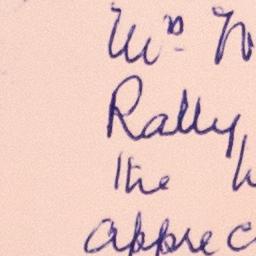 Mr
Rally
the
apprec